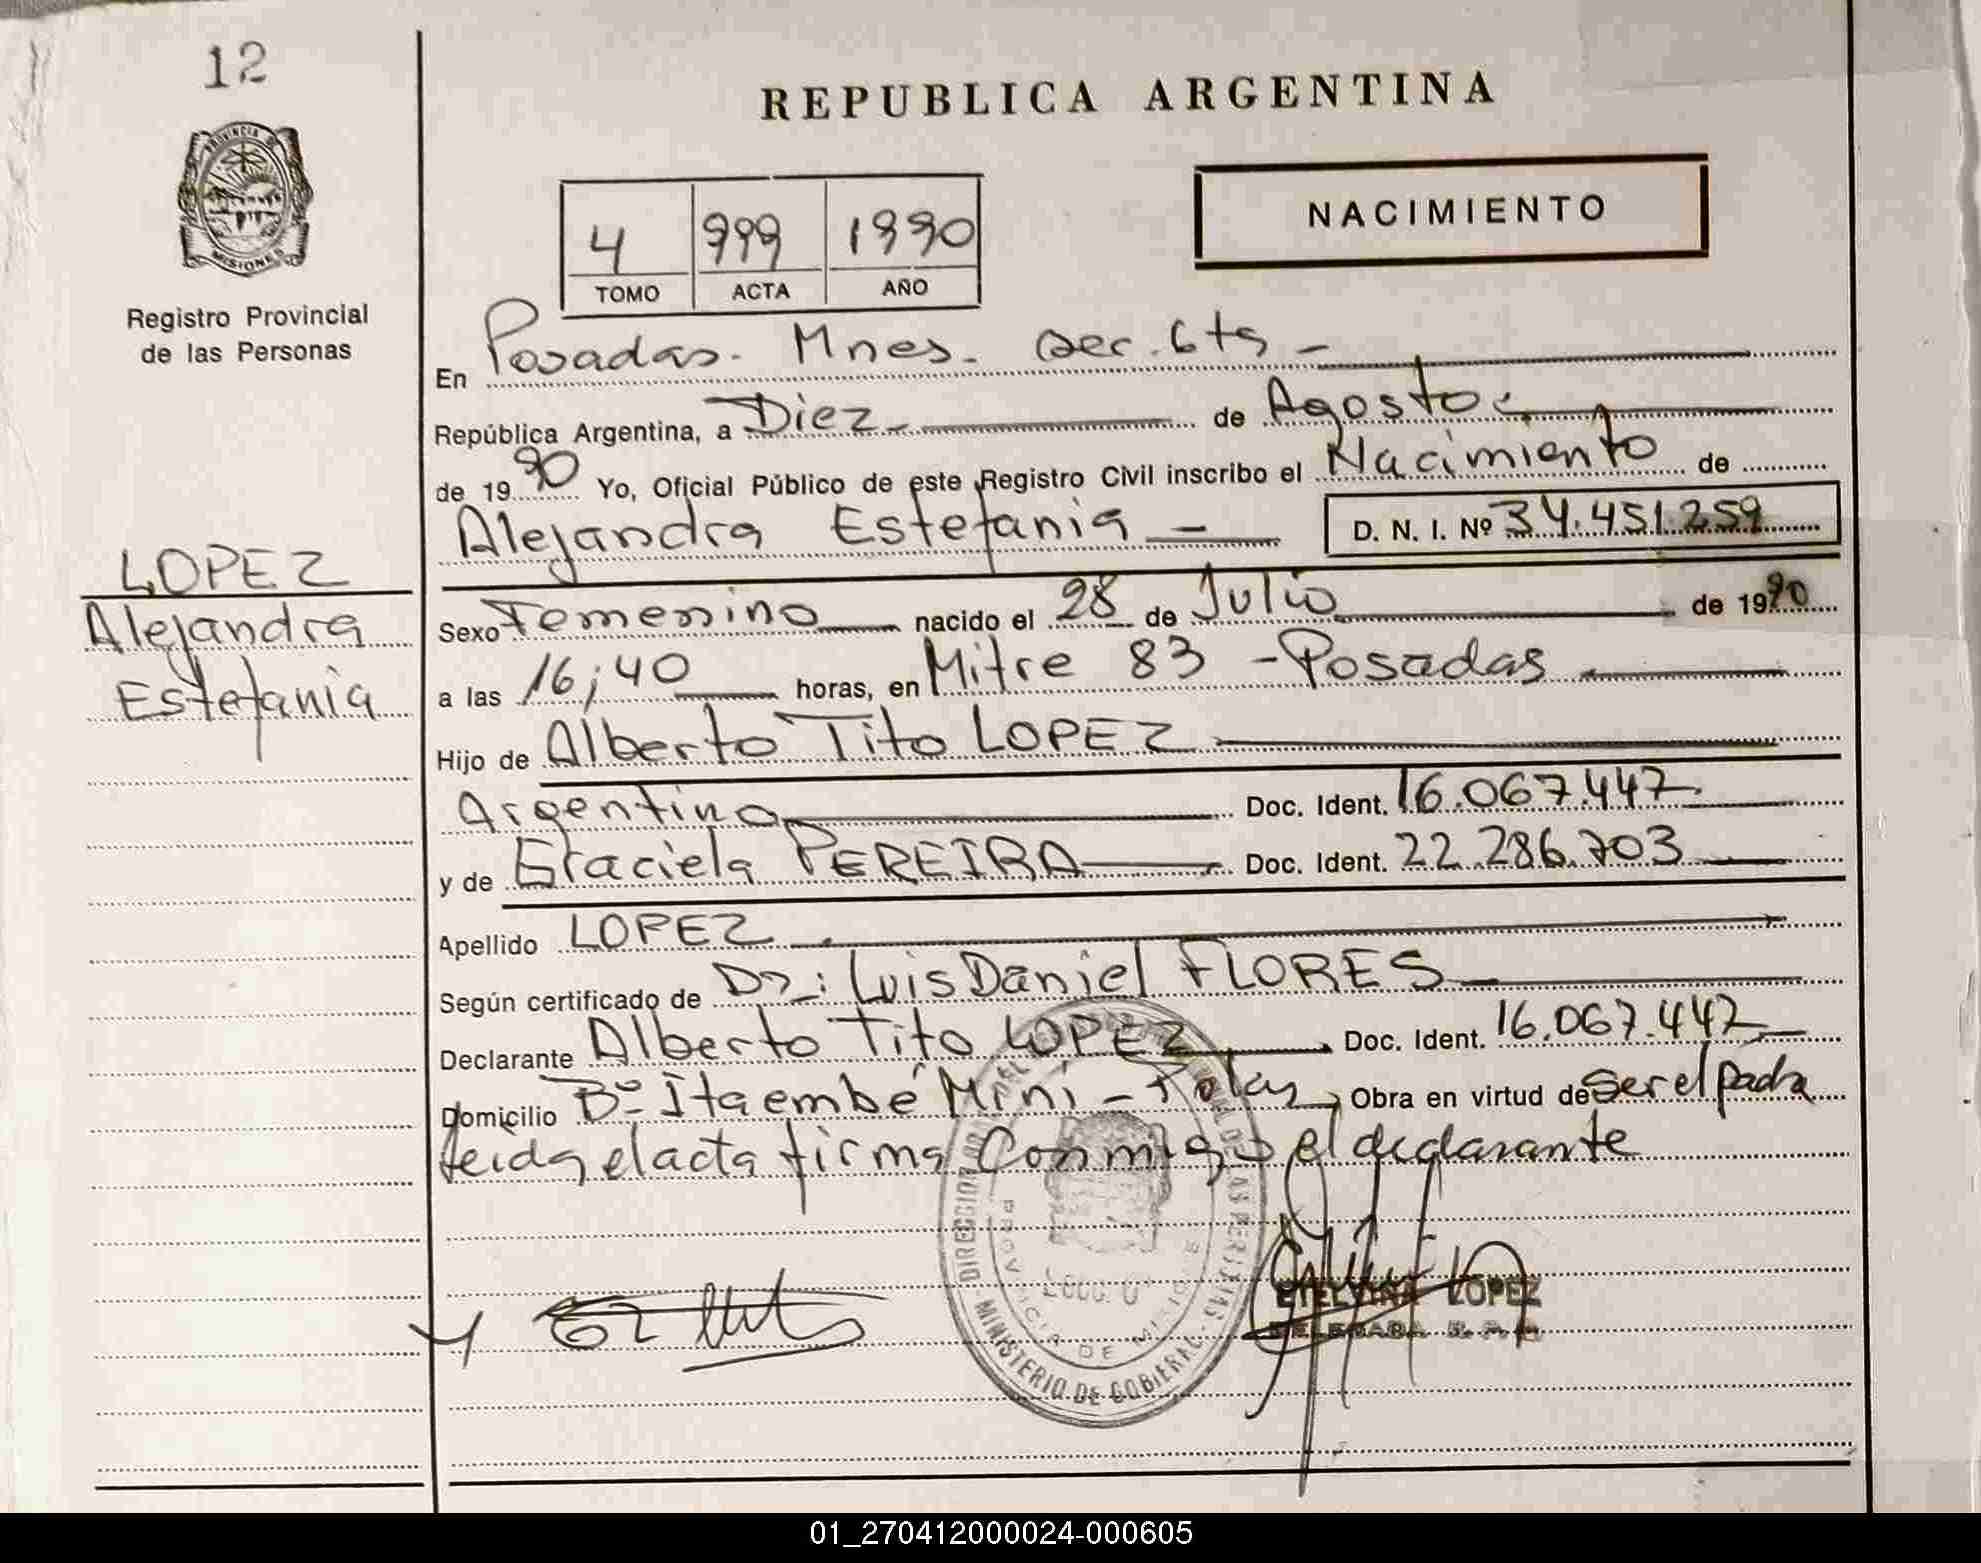 12
PROVINCIA DE
MISIONES
Registro Provincial
de las Personas
LOPEZ
Alejandra
Estefania
REPUBLICA ARGENTINA
4 999 1990
TOMO ACTA AÑO
NACIMIENTO
En Posadas. Mnes. sec. 6ta
República Argentina, a Diez de Agosto
de 1990 Yo, Oficial Público de este Registro Civil inscribo el Nacimiento de
Alejandra Estefania D. N. I. Nº 34.451.259
Sexo Femenino nacido el 28 de Julio de 1990
a las 16;40 horas, en Mitre 83 - Posadas
Hijo de Alberto Tito LOPEZ
Argentino Doc. Ident. 16.067.447
y de Graciela PEREIRA Doc. Ident. 22.286.703
Apellido LOPEZ
Según certificado de Dr: Luis Daniel FLORES
Declarante Alberto Tito LOPEZ Doc. Ident. 16.067.447
Domicilio Bº Itaembé Miní - Obra en virtud de ser el padre
leida el acta firma Conmigo el declarante
MINISTERIO DE GOBIERNO
PROVINCIA DE MISIONES
ETELVINA LOPEZ
DELEGADA
01_270412000024-000605